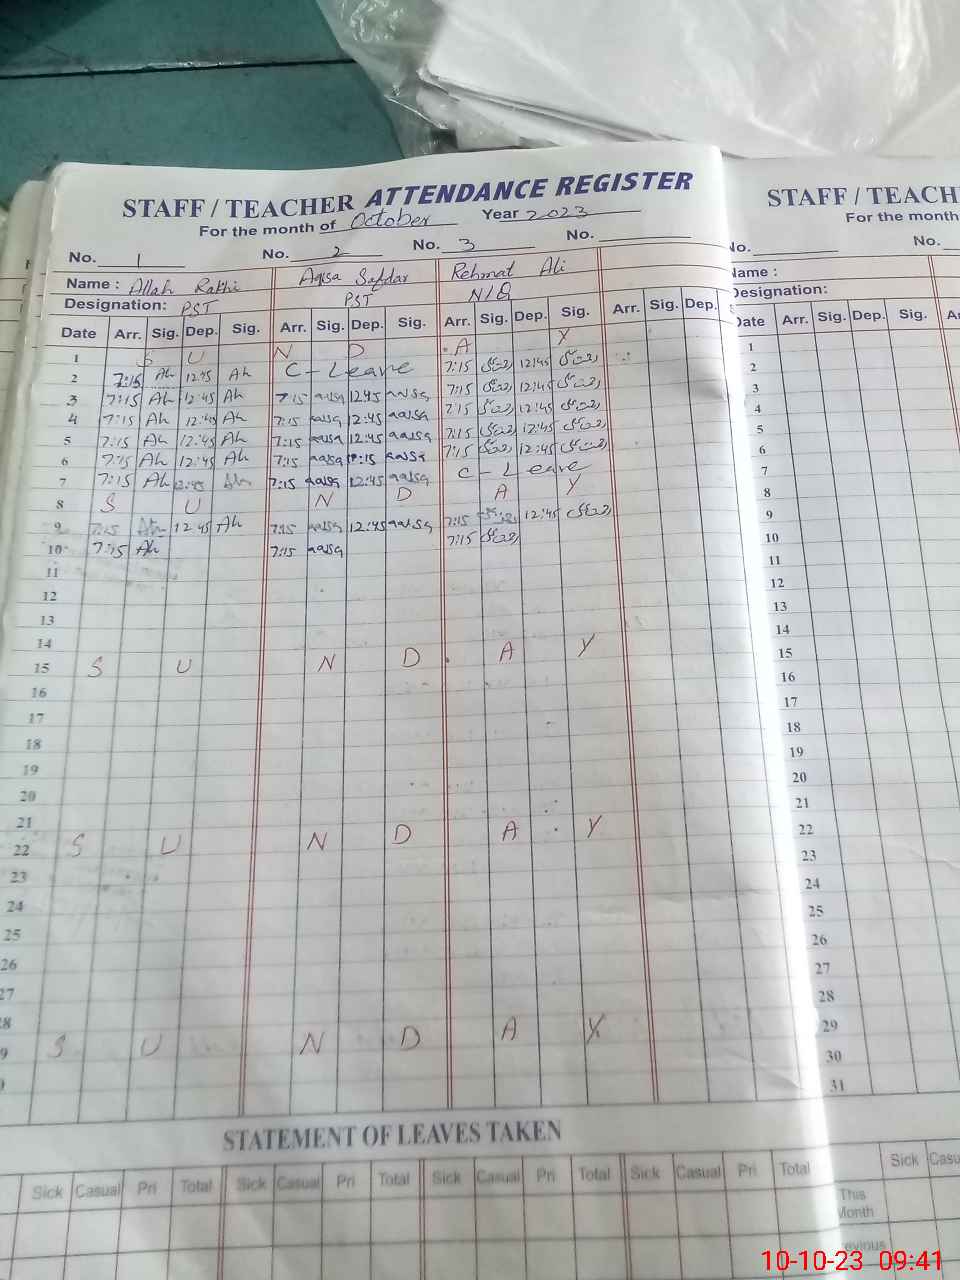 STAFF / TEACHER ATTENDANCE REGISTER
For the month of October Year 2023
No. 1 No. 2 No. 3 No.
Name : Allah Rakhi Aqsa Safdar Rehmat Ali
Designation: PST PST N/Q
Date Arr. Sig. Dep. Sig. Arr. Sig. Dep. Sig. Arr. Sig. Dep. Sig. Arr. Sig. Dep.
1 S U N D A Y
2 7:15 Ah 12:45 Ah C-Leave 7:15 12:45
3 7:15 Ah 12:45 Ah 7:15 aqsa 12:45 aqsa 7:15 12:45
4 7:15 Ah 12:45 Ah 7:15 aqsa 12:45 aqsa 7:15 12:45
5 7:15 Ah 12:45 Ah 7:15 aqsa 12:45 aqsa 7:15 12:45
6 7:15 Ah 12:45 Ah 7:15 aqsa aqsa 7:15 12:45
7 7:15 Ah 12:45 Ah 7:15 aqsa 12:45 aqsa C-Leave
8 S U N D A Y
9 7:15 Ah 12:45 Ah 7:15 aqsa 12:45 aqsa 7:15 12:45
10 7:15 Ah 7:15 aqsa 7:15
11
12
13
14
15 S U N D A Y
16
17
18
19
20
21
22 S U N D A Y
23
24
25
26
27
28
29 S U N D A Y
STATEMENT OF LEAVES TAKEN
Sick Casual Pri Total Sick Casual Pri Total Sick Casual Pri Total Sick Casual Pri Total
STAFF / TEACH
For the month
No. No.
Name :
Designation:
Date Arr. Sig. Dep. Sig.
1
2
3
4
5
6
7
8
9
10
11
12
13
14
15
16
17
18
19
20
21
22
23
24
25
26
27
28
29
30
31
Sick Casu
This
Month
evious
10-10-23 09:41